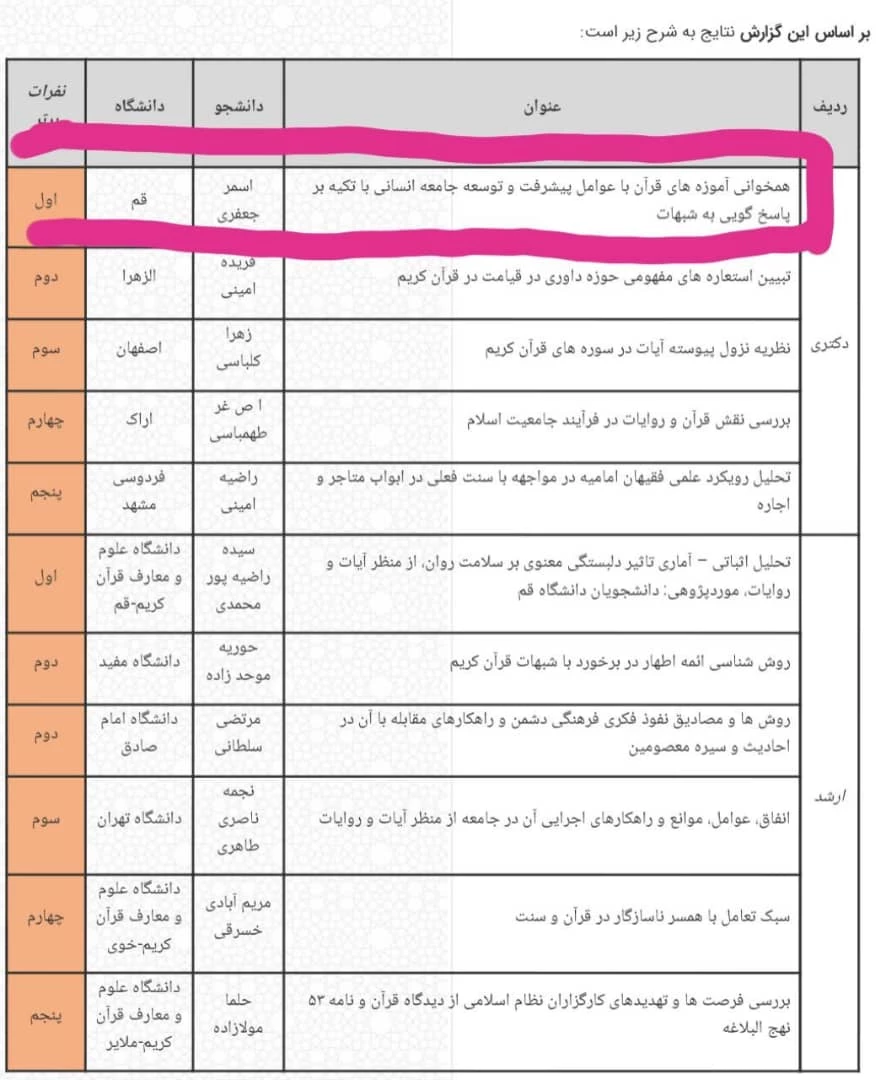 بر اساس این گزارش نتایج به شرح زیر است:
ردیف
عنوان
دانشجو
دانشگاه
نفرات
برتر
دکتری
همخوانی آموزه های قرآن با عوامل پیشرفت و توسعه جامعه انسانی با تکیه بر
پاسخ گویی به شبهات
اسمر
جعفری
قم
اول
تبیین استعاره های مفهومی حوزه داوری در قیامت در قرآن کریم
فریده
امینی
الزهرا
دوم
نظریه نزول پیوسته آیات در سوره های قرآن کریم
زهرا
کلباسی
اصفهان
سوم
بررسی نقش قرآن و روایات در فرآیند جامعیت اسلام
ا ص غر
طهمباسی
اراک
چهارم
تحلیل رویکرد علمی فقیهان امامیه در مواجهه با سنت فعلی در ابواب متاجر و
اجاره
راضیه
امینی
فردوسی
مشهد
پنجم
ارشد
تحلیل اثباتی – آماری تاثیر دلبستگی معنوی بر سلامت روان، از منظر آیات و
روایات، موردپژوهی: دانشجویان دانشگاه قم
سیده
راضیه پور
محمدی
دانشگاه علوم
و معارف قرآن
کریم-قم
اول
روش شناسی ائمه اطهار در برخورد با شبهات قرآن کریم
حوریه
موحد زاده
دانشگاه مفید
دوم
روش ها و مصادیق نفوذ فکری فرهنگی دشمن و راهکارهای مقابله با آن در
احادیث و سیره معصومین
مرتضی
سلطانی
دانشگاه امام
صادق
دوم
انفاق، عوامل، موانع و راهکارهای اجرایی آن در جامعه از منظر آیات و روایات
نجمه
ناصری
طاهری
دانشگاه تهران
سوم
سبک تعامل با همسر ناسازگار در قرآن و سنت
مریم آبادی
خسرقی
دانشگاه علوم
و معارف قرآن
کریم-خوی
چهارم
بررسی فرصت ها و تهدیدهای کارگزاران نظام اسلامی از دیدگاه قرآن و نامه ۵۳
نهج البلاغه
حلما
مولازاده
دانشگاه علوم
و معارف قرآن
کریم-ملایر
پنجم